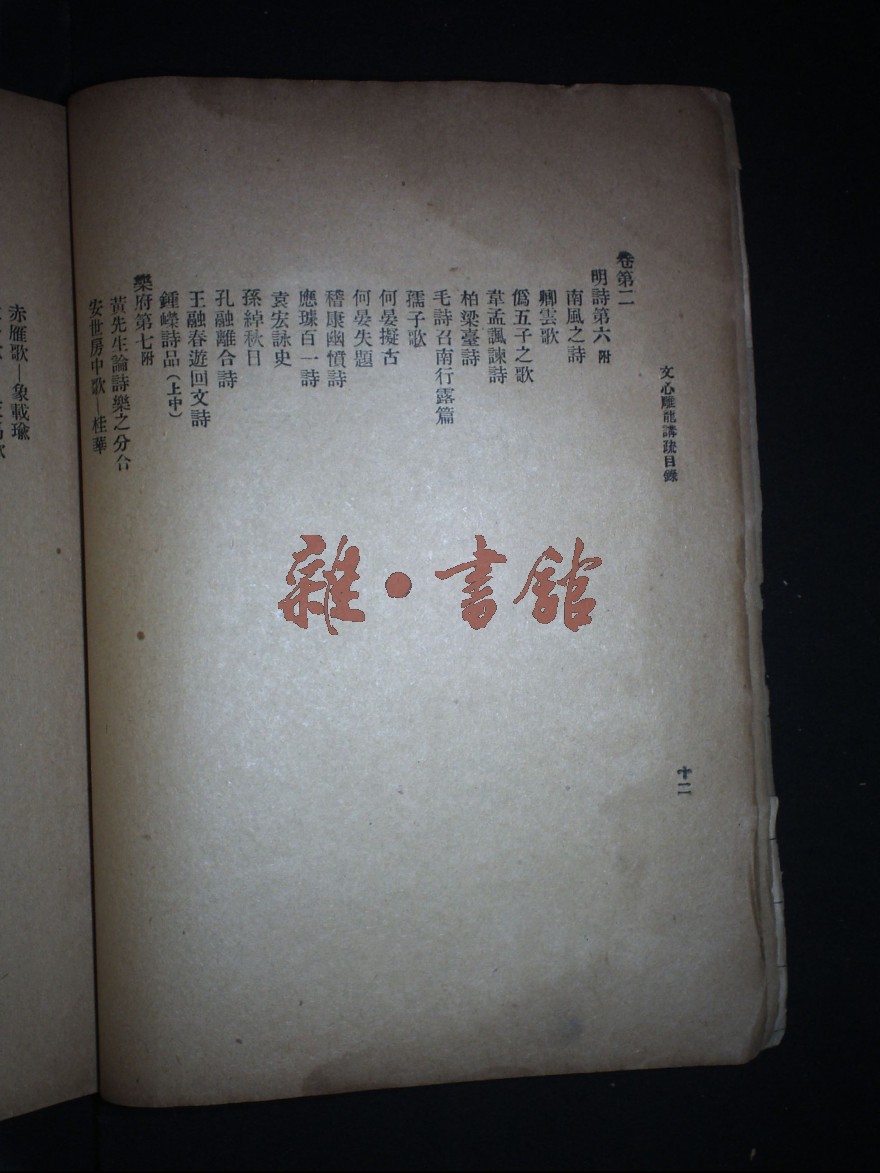 文心雕龍講疏目錄
十二
卷第二
明詩第六附
南風之詩
卿雲歌
僞五子之歌
韋孟諷諫詩
柏梁臺詩
毛詩召南行露篇
孺子歌
何晏擬古
何晏失題
稽康幽憤詩
應璩百一詩
袁宏詠史
孫綽秋日
孔融離合詩
王融春遊回文詩
鍾嶸詩品(上中)
樂府第七附
黃先生論詩樂之分合
安世房中歌—桂華
赤雁歌—象載瑜
雜·書館